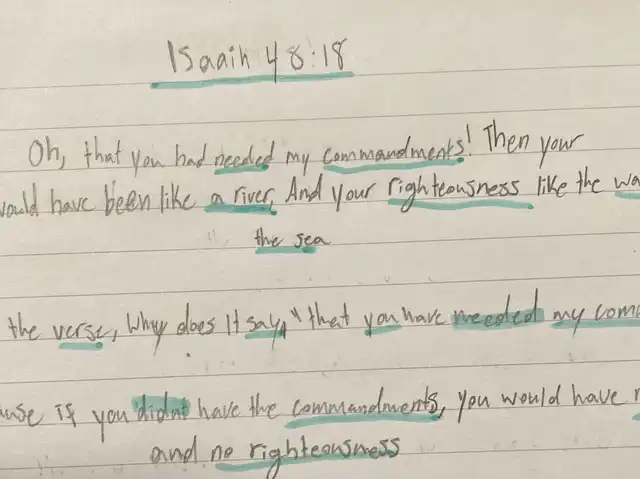 Isaaih 48:18
Oh, that you had needed my commandments! Then your
would have been like a river, And your righteousness like the wa
the sea
the verse, Why does it say, "that you have needed my comm
ause if you didnt have the commandments, you would have n
and no righteousness